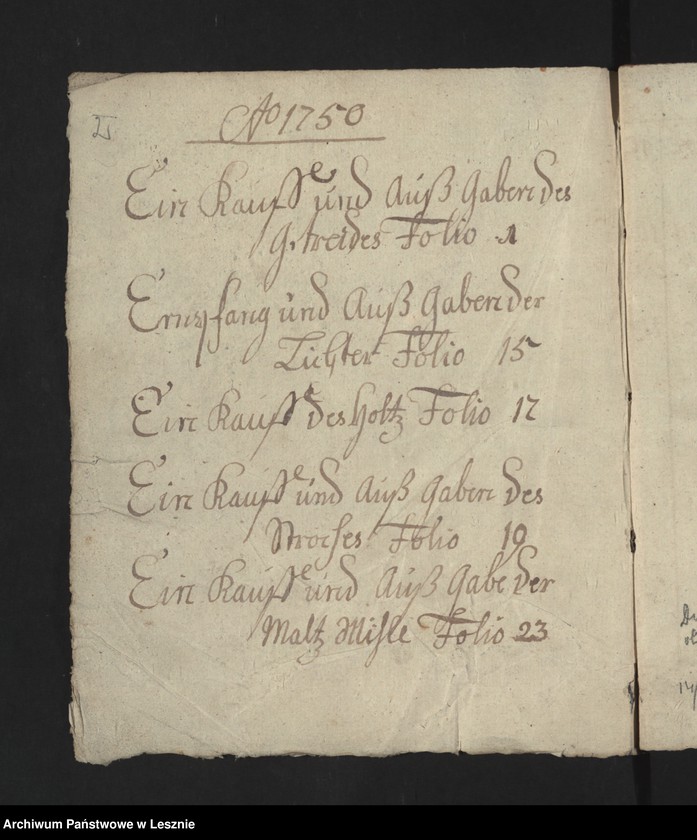 II
Ao 1750
Ein Kauff und Auß Gaben des
Getreides Folio 1
Empfang und Auß Gaben der
Lichter Folio 15
Ein Kauff des Holtz Folio 17
Ein Kauff und Auß Gaben des
Strohes Folio 19
Ein Kauff und Auß Gabe der
Maltz Mihle Folio 23
Archiwum Państwowe w Lesznie